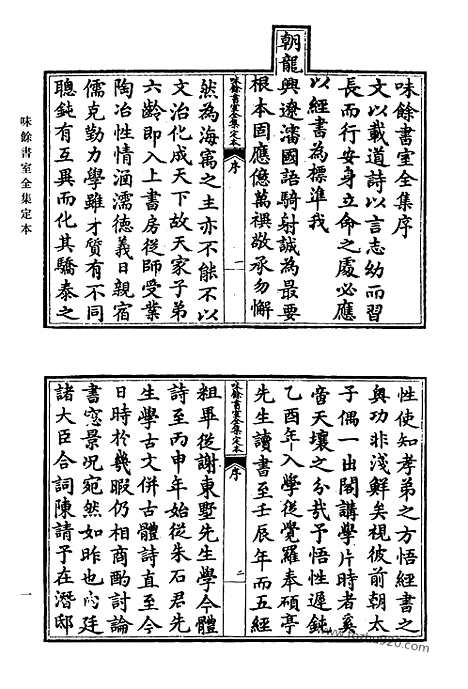 味餘書室全集序
文以載道詩以言志幼而習
長而行安身立命之處必應
以經書為標準我
朝龍
興遼瀋國語騎射誠為最要
根本固應億萬禩敬承勿懈
味餘書室全集定本
序
一
然為海寓之主亦不能不以
文治化成天下故天家子弟
六齡即入上書房從師受業
陶冶性情涵濡德義日親宿
儒克勤力學雖才質有不同
聰鈍有互異而化其驕泰之
味餘書室全集定本
性使知孝弟之方悟經書之
奧功非淺鮮矣視彼前朝太
子偶一出閣講學片時者奚
啻天壤之分哉予悟性遲鈍
乙酉年入學從覺羅奉碩亭
先生讀書至壬辰年而五經
味餘書室全集定本
序
二
粗畢從謝東墅先生學今體
詩至丙申年始從朱石君先
生學古文併古體詩直至今
日時於幾暇仍相商酌討論
書窓景况宛然如昨也內廷
諸大臣合詞陳請予在潛邸
一